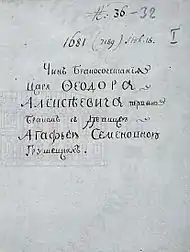 № 36-32
1681 (7189) Iюл. 18.
I
Чинъ Бракосочетанiя
Царя Ѳеодора
Алексѣевича первымъ
бракомъ съ дѣвицею
Агафьею Семеновною
Грушецкихъ.